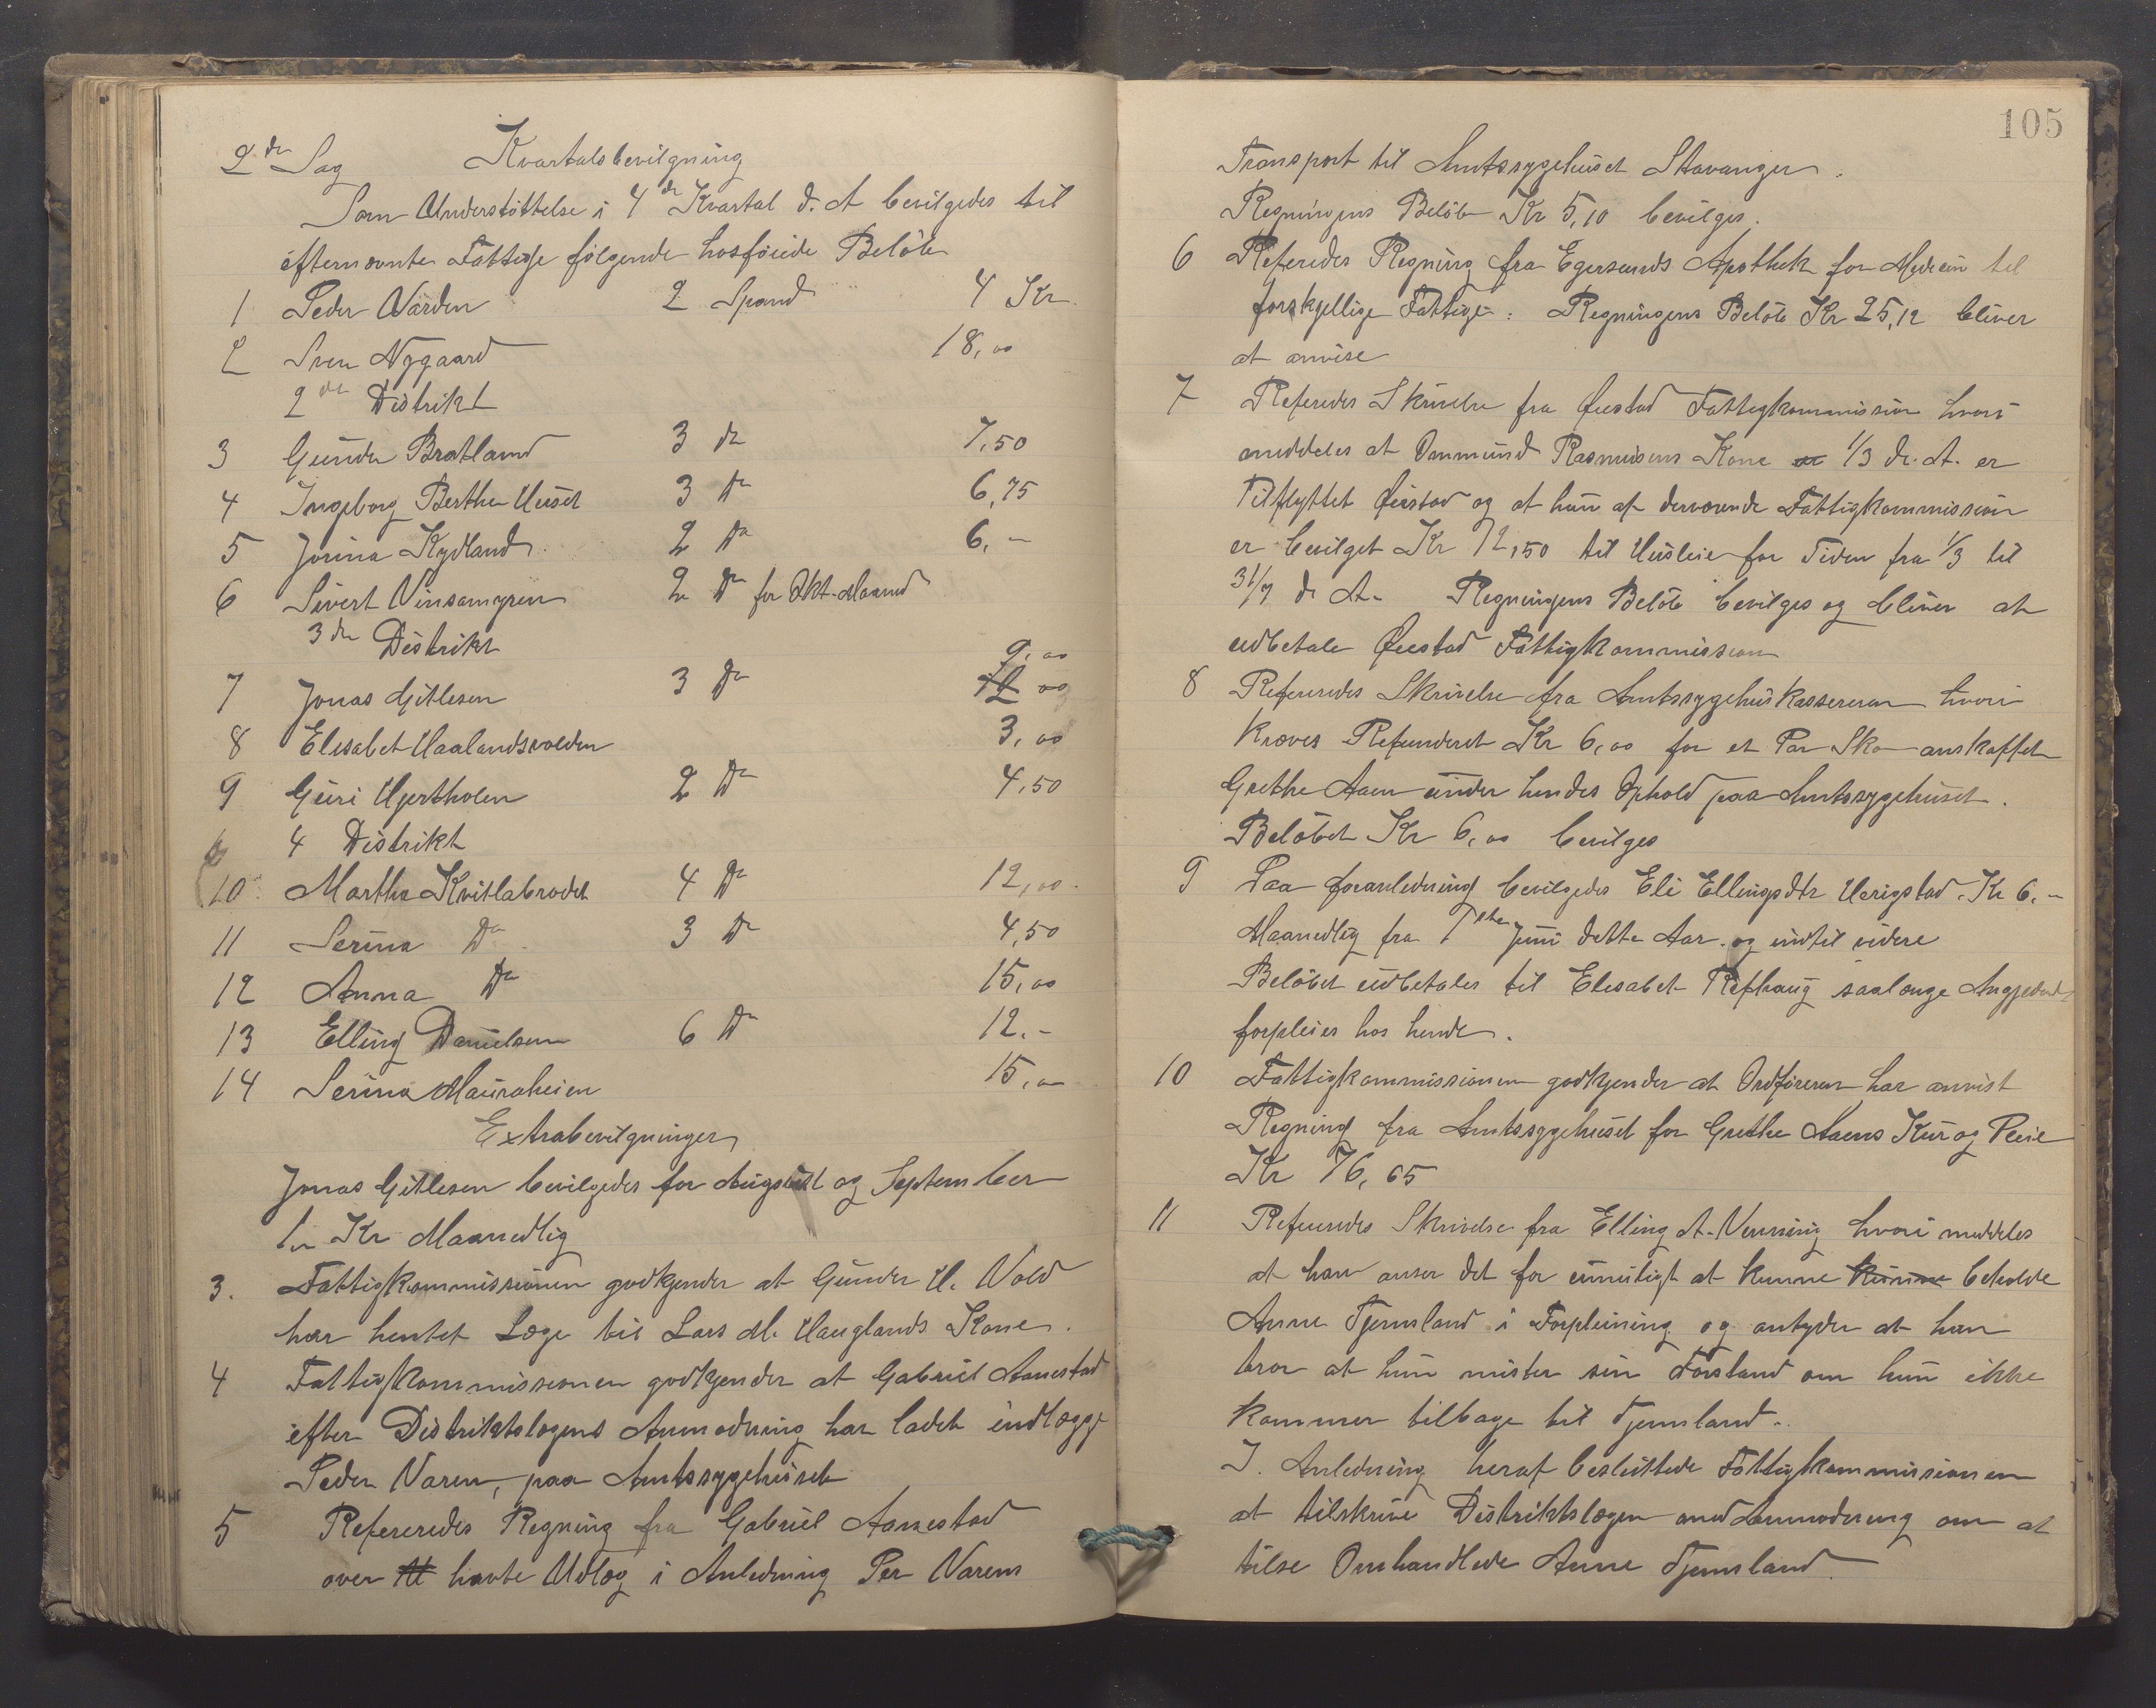 2den Sag Kvartalsbevilgning
Som Understöttelse i 4de Kvartal d. A bevilgedes til
efternævnte Fattige følgende hosføiede Beløb
1 Peder Varden 2 Spand 4 Kr
2 Sven Nygaard 18,00
2den Distrikt
3 Gunder Bratland 3 do 7,50
4 Ingeborg Berthe Huset 3 Do 6,75
5 Jorina Kydland 2 Do 6,-
6 Sivert Vinsamyren 2 Do for Okt. Maaned
3die Distrikt 9,00
7 Jonas Gitlesen 3 Do 12 00
8 Elisabet Haalandsvolden 3,00
9 Guri Hjertholen 2 Do 4,50
4 Distrikt
10 Martha Kvitlabrodet 4 Do 12,00
11 Serina Do 3 Do 4,50
12 Anna Do 15,00
13 Elling Danielsen 6 Do 12.-
14 Serina Mauraheien 15,00
Extrabevilgninger
Jonas Gitlesen bevilgedes for August og September
Kr Maanedlig
3. Fattigkommissionen godkjender at Gunder H. Vold
har hentet Læge til Lars M. Hauglands Kone.
4 Fattigkommissionen godkjender at Gabriel Aanestad
efter Distriktslægens Anmodning har ladet indlægge
Peder Varen, paa Amtssygehuset
5 Refereredes Regning fra Gabriel Aanestad
over havte Udlæg i Anledning Per Varens
105
Transport til Amtssygehuset Stavanger.
Regningens Beløb Kr 5,10 bevilges.
6 Referedes Regning fra Egersunds Apothek for Medecin til
forskjellige Fattige: Regningens Beløb Kr 25,12 bliver
at anvise
7 Referedes Skrivelse fra Øiestad Fattigkommission hvori
meddeles at Ommund Rasmusens Kone 1/3 d. A. er
tilflyttet Øiestad og at hun af derværende Fattigkommission
er bevilget Kr 12,50 til Husleie for Tiden fra 1/3 til
31/7 d. A. Regningens Beløb bevilges og bliver at
udbetale Øiestad Fattigkommission
8 Refereredes Skrivelse fra Amtssygehuskassereren hvori
kræves Refunderet Kr 6,00 for et Par Sko anskaffet
Grethe Aaen under hendes Ophold paa Amtssygehuset.
Beløbet Kr 6,00 bevilges
9 Paa foranledning bevilgedes Eli Ellingsdtr Herigstad. Kr 6.-
Maanedlig fra 1ste Juni dette Aar. og indtil videre
Beløbet udbetales til Elesabet Refhaug saalænge Angjeldende
forpleies hos hende.
10 Fattigkommissionen godkjender at Ordføreren har anvist
Regning fra Amtssygehuset for Grethe Aaens Kur og Pleie
Kr 76,65
11 Refereredes Skrivelse fra Elling A. Nevning hvori meddeles
at han anser det for umuligt at kunne kunne beholde
Anne Tjemsland i Forpleining og antyder at han
tror at hun mister sin Forstand om hun ikke
kommer tilbage til Tjemsland.
I. Anledning heraf besluttede Fattigkommissionen
at tilskrive Distriktslægen med Anmodning om at
tilse Omhandlede Anne Tjemsland.